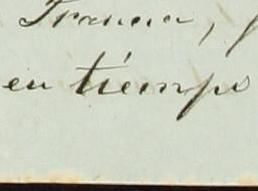 Francia,
en tiempo